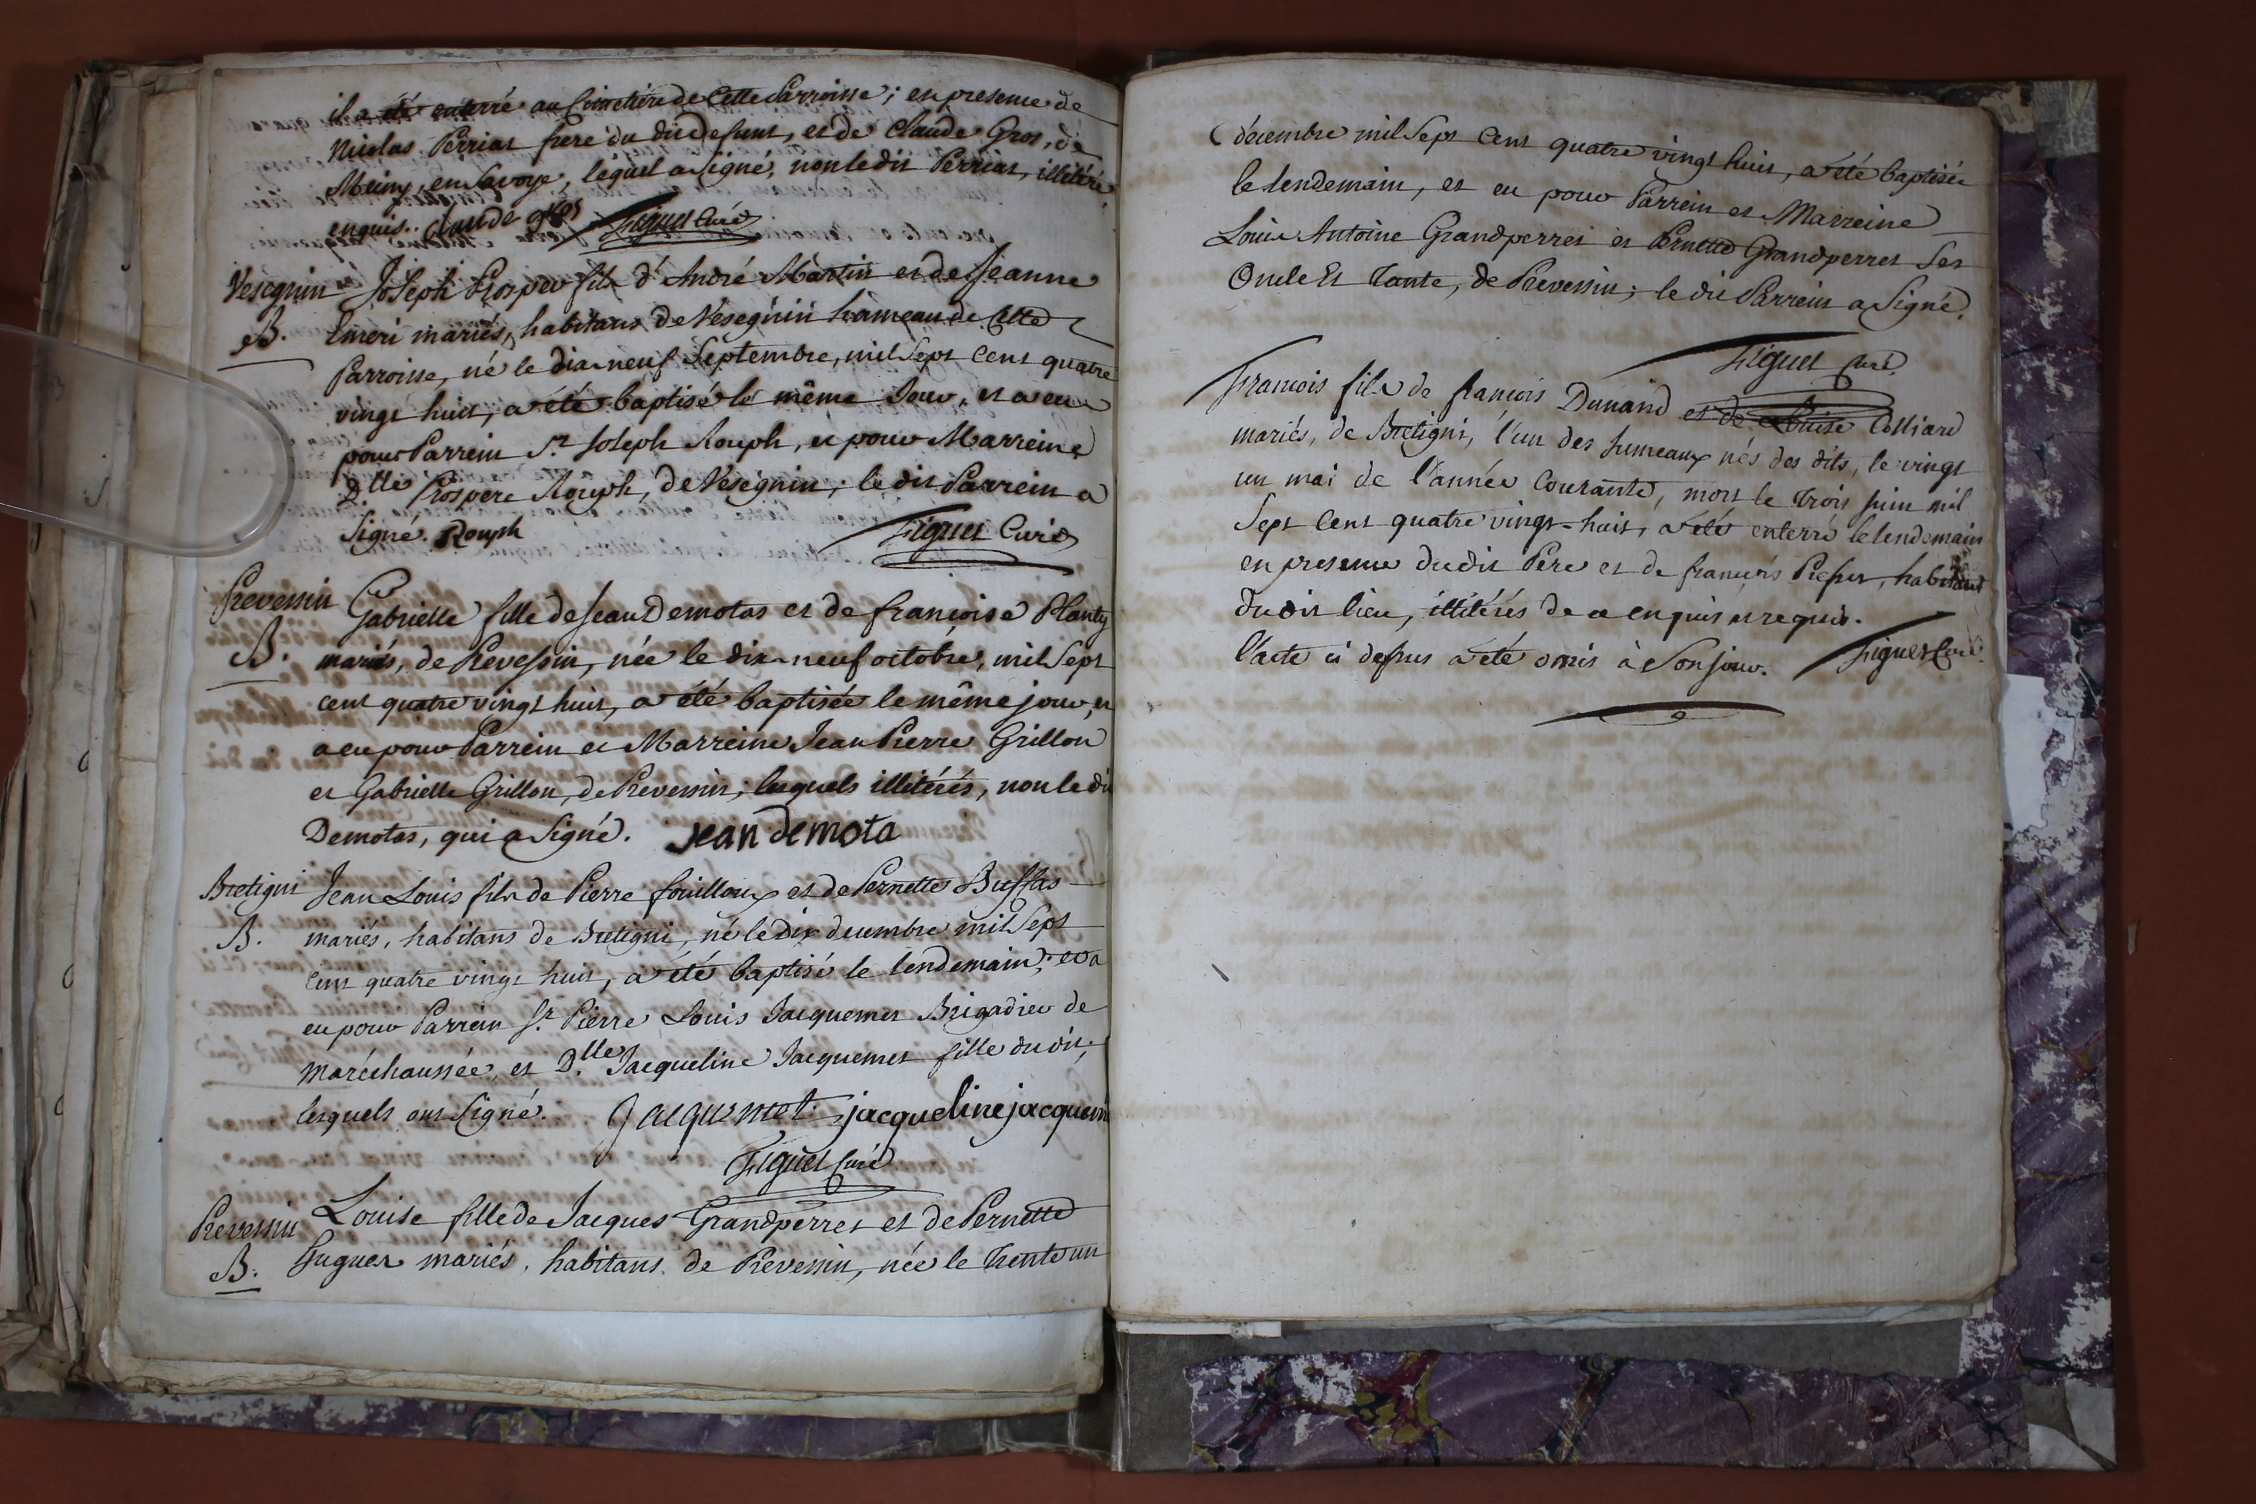 il a été enterré au Cimetière de cette Parroisse; en presence de
Nicolas Perrias frere du dit defunt, et de Claude Gros, de
en Savoye, lequel a Signé, non le dit Perrias, illitéré
enquis. Claude gros Figuet Curé
Vesegnin Joseph Prosper fils d'André Martin et de Jeanne
B. Emeri mariés, habitans de Vésegnin hameau de Cette
Parroisse, né le dix neuf Septembre, mil Sept Cent quatre
vingt huit, a été baptisé le même Jour, et a eu
pour Parrein Sr. Joseph Rouph, et pour Marreine
Dlle Prospere Rouph, de Vésegnin; le dit Parrein a
Signé. Rouph Figuet Curé
Prevessin Gabrielle fille de Jean Demotas et de françoise Planty
B. mariés, de Prevessin, née le dix neuf octobre, mil Sept
cent quatre vingt huit, a été baptisée le même jour, et
a eu pour Parrein et Marreine Jean Pierre Grillon
et Gabrielle Grillon, de Prevessin; lesquels illitérés, non le dit
Demotas, qui a Signé. jean demota
Bretigni Jean Louis fils de Pierre fouilloux et de Pernette Buffas
B. mariés, habitans de Bretigni, né le Dix decembre mil Sept
Cent quatre vingt huit, a été baptisé le lendemain; et a
eu pour Parrein Sr. Pierre Louis Jacquemet Brigadier de
maréchaussée, et Dlle. Jacqueline Jacquemet fille du dit;
lesquels ont Signé. Jacquemet jacqueline jacquem
Figuet Curé
Prevessin Louise fille de Jacques Grandperret et de Pernette
B. Hugues mariés, habitans de Prevessin, née le Trente un
décembre mil Sept Cent quatre vingt huit, a été baptisée
le lendemain, et eu pour Parrein et Marreine
Louis Antoine Grandperret et Pernette Grandperret Ses
Oncle Et Tante, de Prevessin; le dit Parrein a Signé.
Figuet Curé
François fils de françois Dunand et de Louise Colliard
mariés, de Bretigni, l'un des Jumeaux nés des dits, le vingt
un mai de l'année Courante, mort le Trois juin mil
Sept Cent quatre vingt-huit, a été enterré le lendemain
en presence du dit Père et de françois habitant
du dit lieu, illitérés de ce enquis et requis.
l'acte ci dessus a été omis à Son jour. Figuet Curé